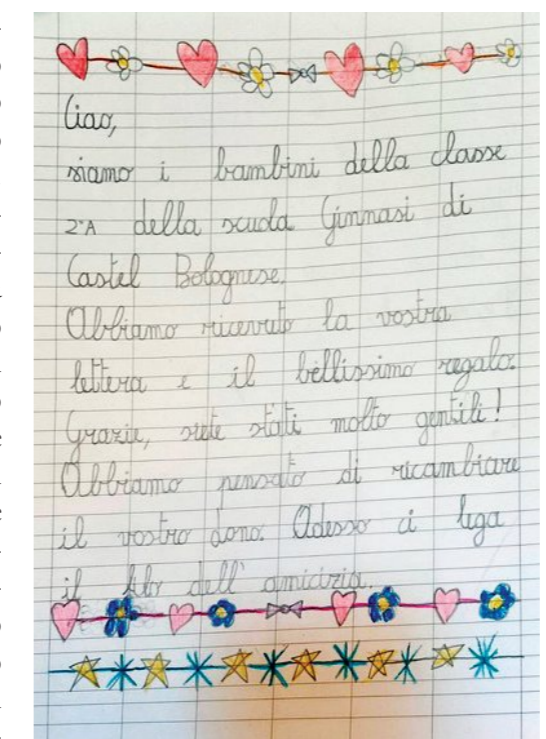 Ciao,
siamo i bambini della classe
2^A della scuola Ginnasi di
Castel Bolognese.
Abbiamo ricevuto la vostra
lettera e il bellissimo regalo.
Grazie, siete stati molto gentili!
Abbiamo pensato di ricambiare
il vostro dono. Adesso ci lega
il filo dell'amicizia.